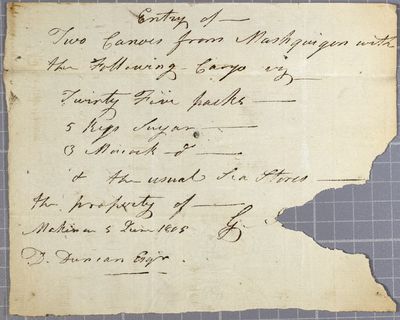 Entry of —
Two Canoes from Mashquigon with
the Following Cargo viz
Twinty Five packs —
5 Kegs Sugar —
3 Mocock do —
& the usual Sea Stores —
the property of —
Makinac 5 June 1805 G
D. Duncan Esqr.